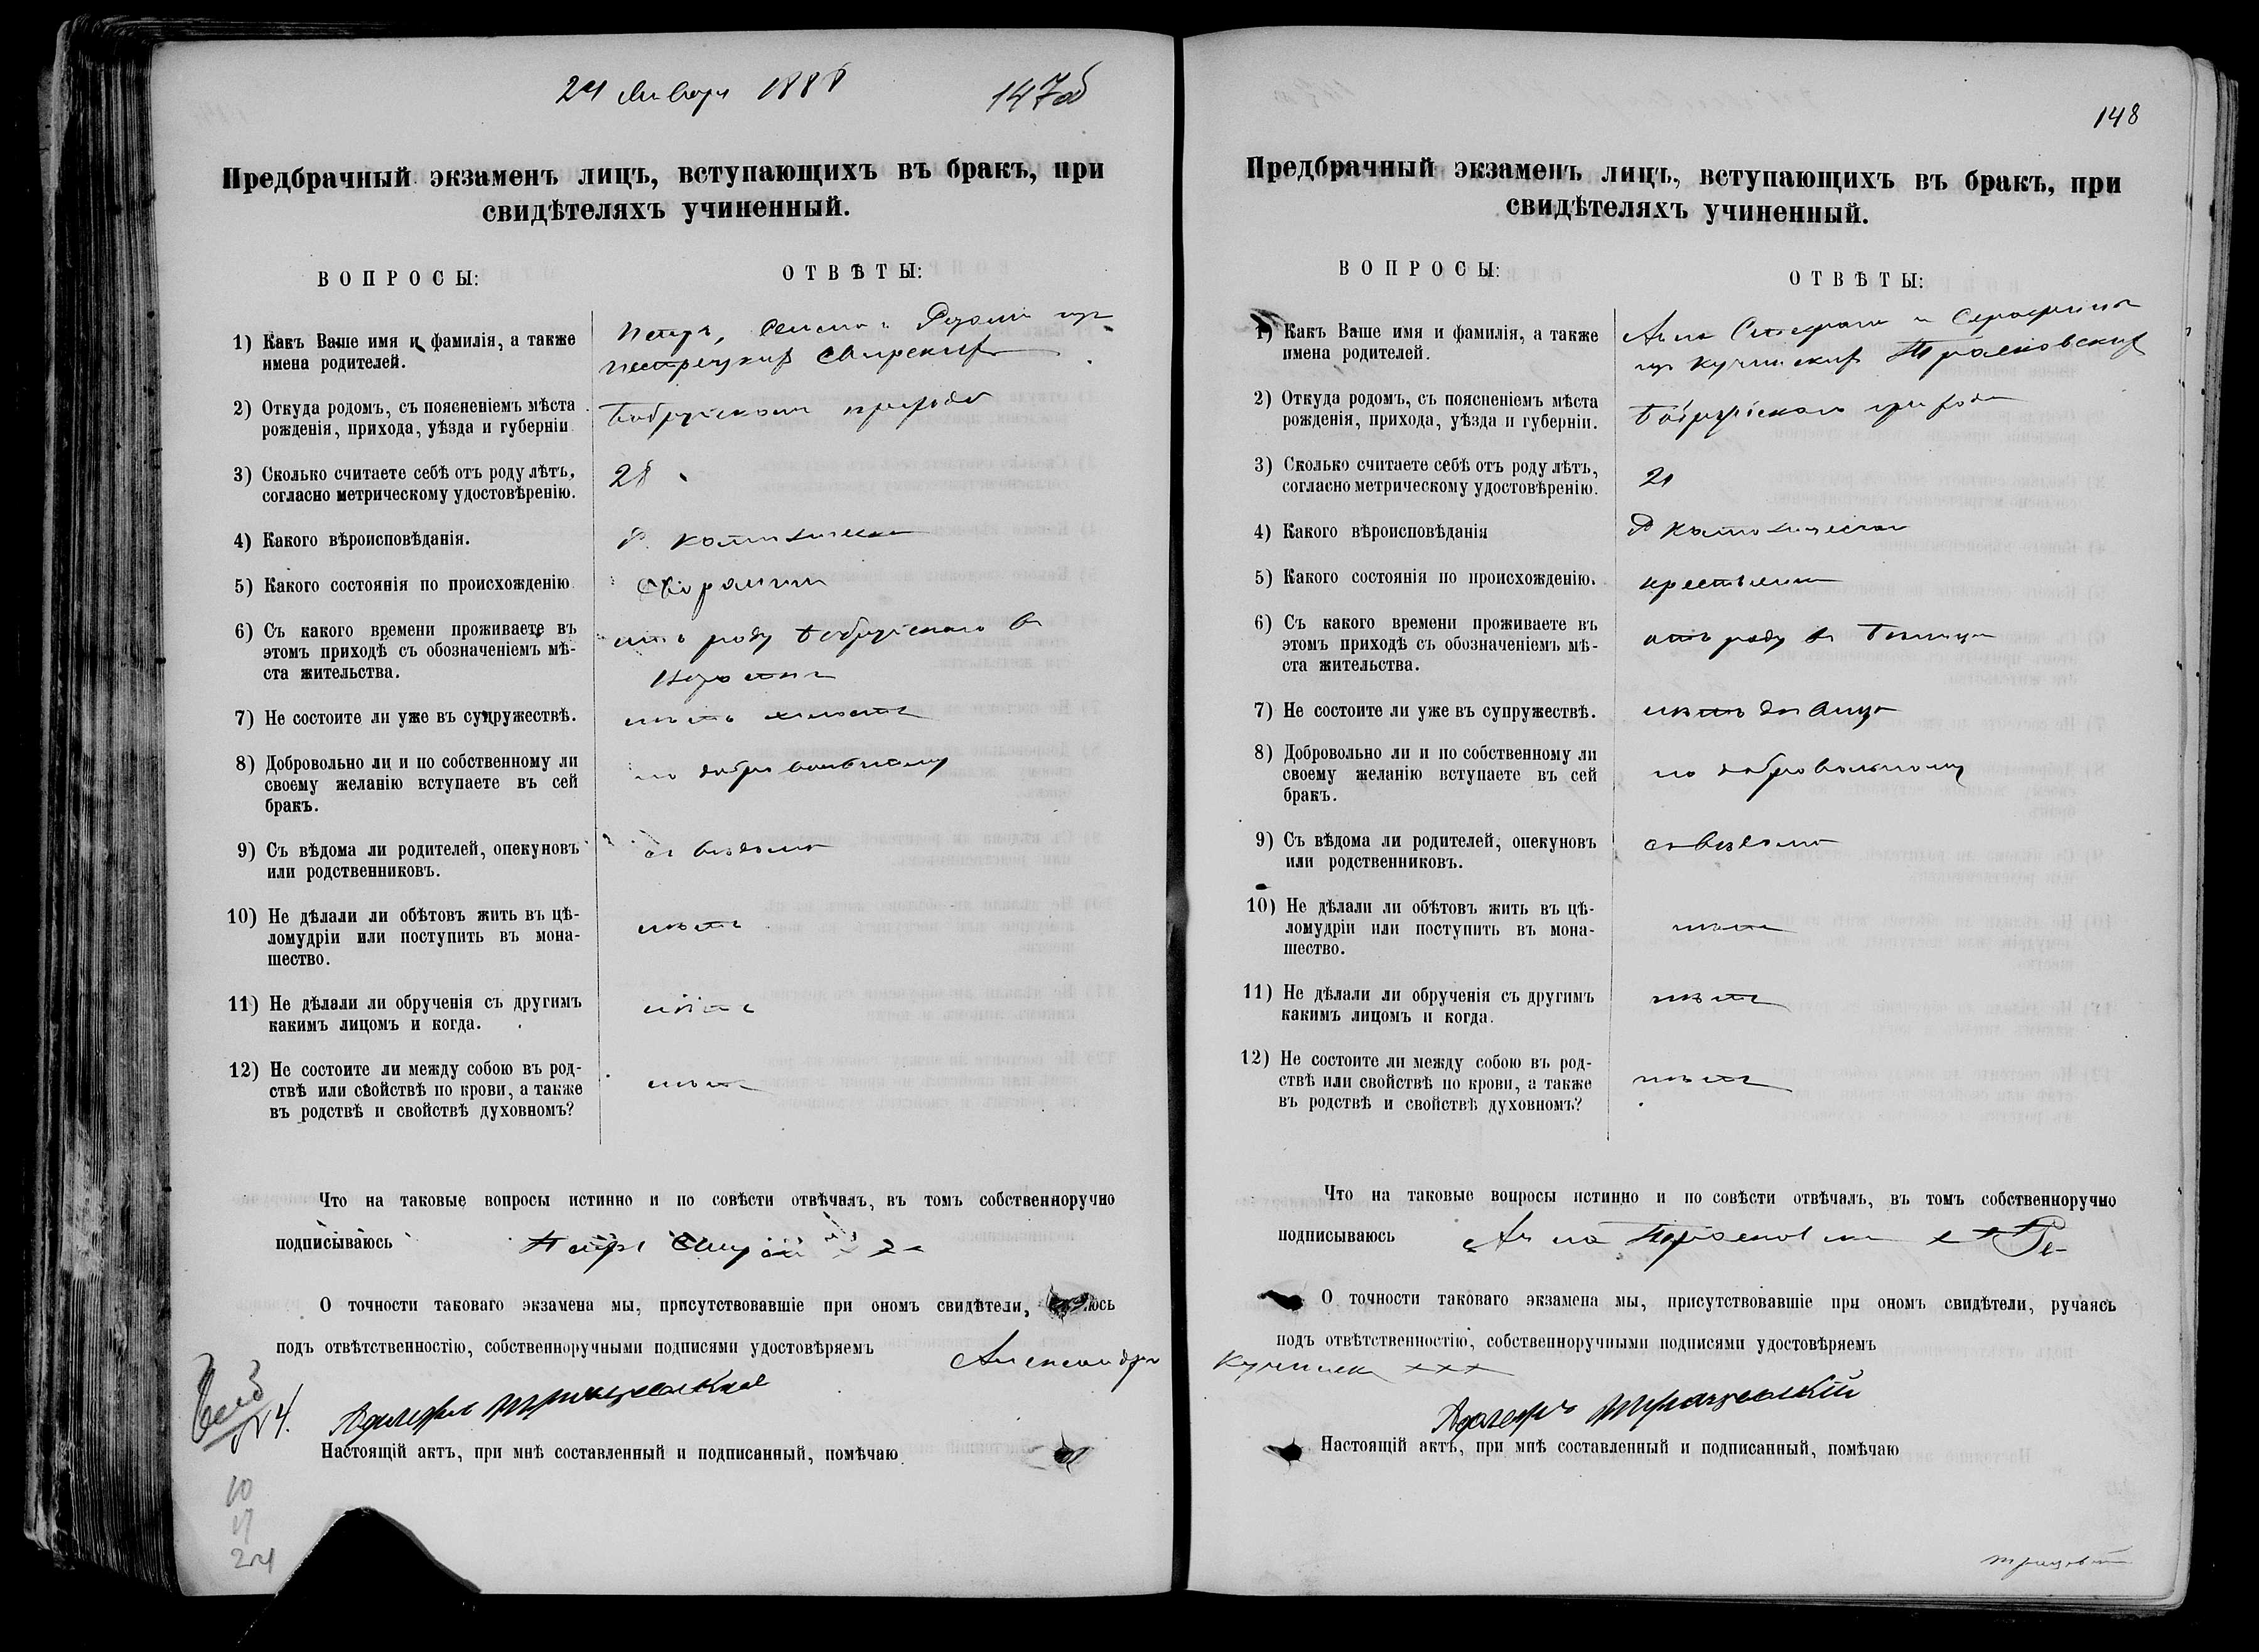 24 Января 1888
147об
Предбрачный экзаменъ лицъ, вступающихъ въ бракъ, при
свидѣтеляхъ учиненный.
ВОПРОСЫ:
ОТВѢТЫ:
1) Какъ Ваше имя и фамилія, а также
имена родителей.
Петръ,
2) Откуда родомъ, съ поясненіемъ мѣста
рожденія, прихода, уѣзда и губерніи
Бобруйскаго прихода
3) Сколько считаете себѣ отъ роду лѣтъ,
согласно метрическому удостовѣренію.
28
4) Какого вѣроисповѣданія.
Р. Католическаго
5) Какого состоянія по происхожденію
дворянинъ
6) Съ какого времени проживаете въ
этомъ приходѣ съ обозначеніемъ мѣ-
ста жительства.
отъ роду Бобруйскаго в
7) Не состоите ли уже въ супружествѣ.
нѣтъ холостъ
8) Добровольно ли и по собственному ли
своему желанію вступаете въ сей
бракъ.
по добровольному
9) Съ вѣдома ли родителей, опекуновъ
или родственниковъ.
съ вѣдома
10) Не дѣлали ли обѣтовъ жить въ цѣ-
ломудріи или поступить въ мона-
шество.
нѣтъ
11) Не дѣлали ли обрученія съ другимъ
какимъ лицомъ и когда.
нѣтъ
12) Не состоите ли между собою въ род-
ствѣ или свойствѣ по крови, а также
въ родствѣ и свойствѣ духовномъ?
нѣтъ
Что на таковые вопросы истинно и по совѣсти отвѣчалъ, въ томъ собственноручно
подписываюсь
Петръ
О точности таковаго экзамена мы, присутствовавшіе при ономъ свидѣтели,
подъ отвѣтственностію, собственноручными подписями удостовѣряемъ
Александръ
Настоящій актъ, при мнѣ составленный и подписанный, помѣчаю
10
17
24
148
Предбрачный экзаменъ лицъ, вступающихъ въ бракъ, при
свидѣтеляхъ учиненный.
ВОПРОСЫ:
ОТВѢТЫ:
1) Какъ Ваше имя и фамилія, а также
имена родителей.
Анна Стефана и Серафины
2) Откуда родомъ, съ поясненіемъ мѣста
рожденія, прихода, уѣзда и губерніи.
Бобруйскаго прихода
3) Сколько считаете себѣ отъ роду лѣтъ,
согласно метрическому удостовѣренію.
21
4) Какого вѣроисповѣданія
Р Католическаго
5) Какого состоянія по происхожденію.
крестьянка
6) Съ какого времени проживаете въ
этомъ приходѣ съ обозначеніемъ мѣ-
ста жительства.
отъ роду в
7) Не состоите ли уже въ супружествѣ.
нѣтъ дѣвица
8) Добровольно ли и по собственному ли
своему желанію вступаете въ сей
бракъ.
по добровольному
9) Съ вѣдома ли родителей, опекуновъ
или родственниковъ.
съ вѣдома
10) Не дѣлали ли обѣтовъ жить въ цѣ-
ломудріи или поступить въ мона-
шество.
нѣтъ
11) Не дѣлали ли обрученія съ другимъ
какимъ лицомъ и когда.
нѣтъ
12) Не состоите ли между собою въ род-
ствѣ или свойствѣ по крови, а также
въ родствѣ и свойствѣ духовномъ?
нѣтъ
Что на таковые вопросы истинно и по совѣсти отвѣчалъ, въ томъ собственноручно
подписываюсь
Анна
О точности таковаго экзамена мы, присутствовавшіе при ономъ свидѣтели, ручаясь
подъ отвѣтственностію, собственноручными подписями удостовѣряемъ
xxx
Настоящій актъ, при мнѣ составленный и подписанный, помѣчаю